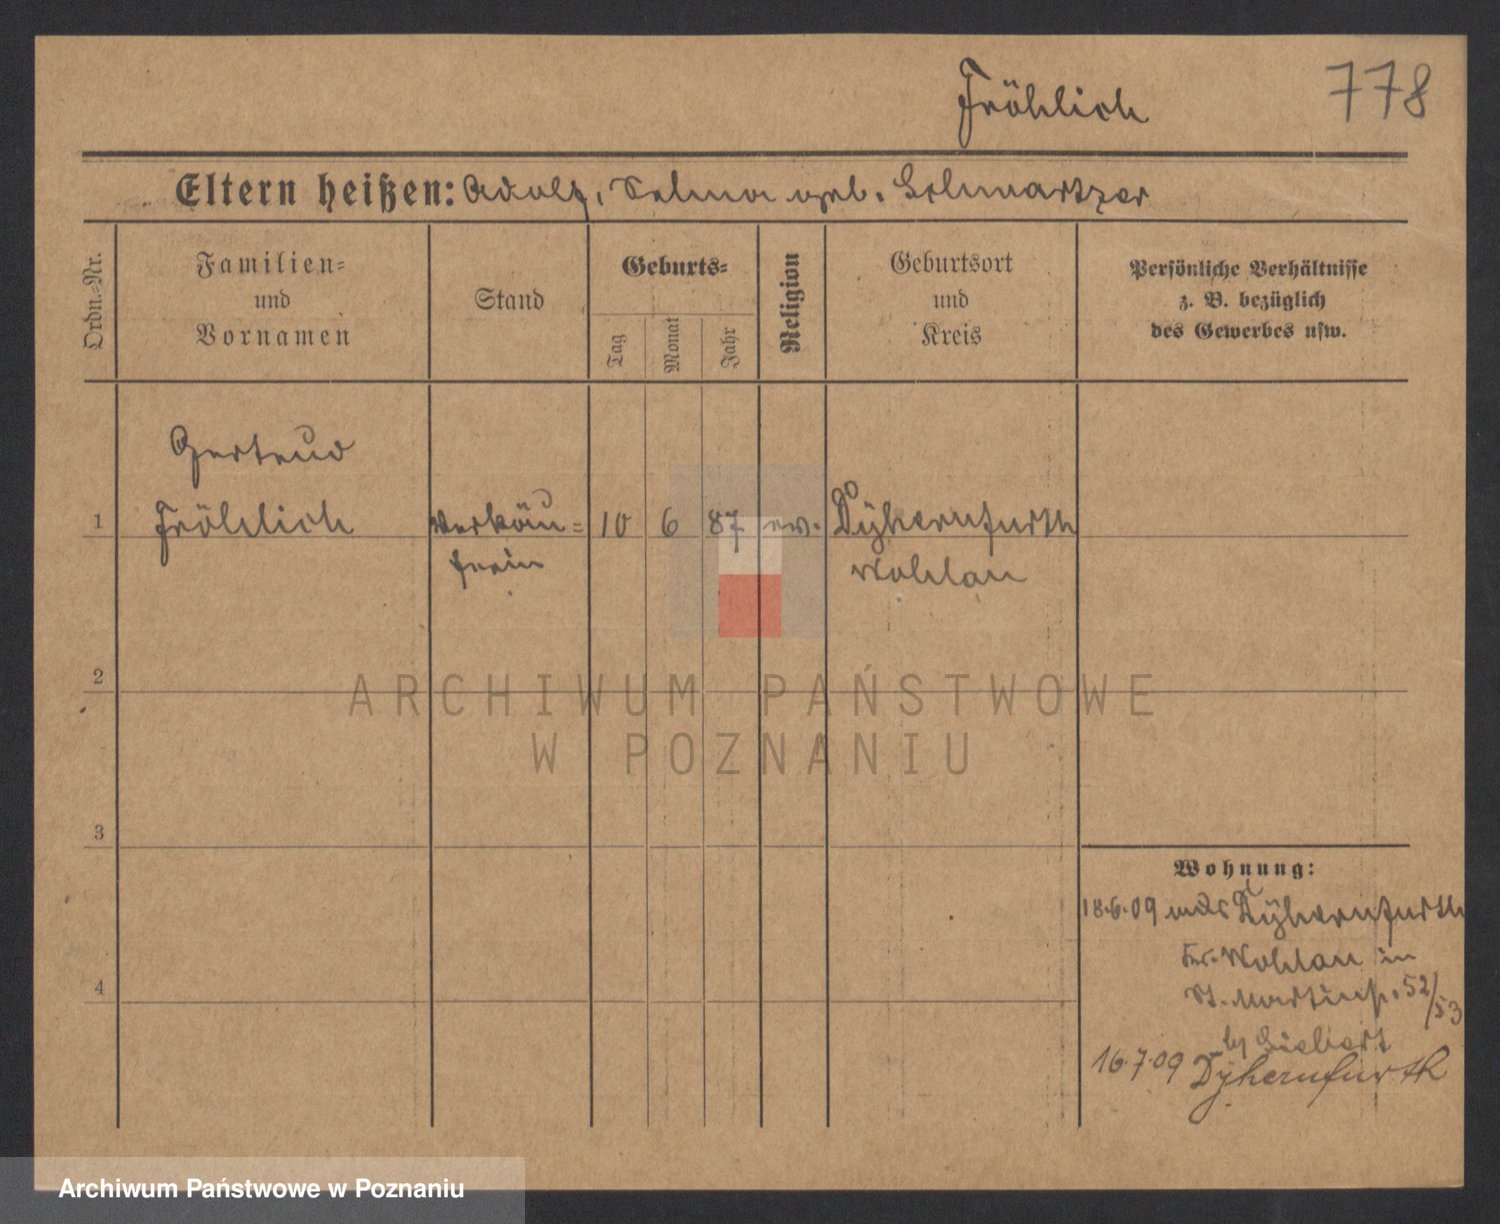 Fröhlich 778
Eltern heißen: Adolf, Selma geb. Schwartzer
Ordn.-Nr.
Familien- und Vornamen
Stand
Geburts-
Tag Monat Jahr
Religion
Geburtsort und Kreis
Persönliche Verhältnisse
z. B. bezüglich
des Gewerbes usw.
Gertrud
1 Fröhlich Verkäu= 10 6 87 ev. Dyhernfurth
ferin Wohlau
2
ARCHIWUM PAŃSTWOWE
W POZNANIU
3
Wohnung:
18.6.09 aus Dyhernfurth
Kr. Wohlau in
4
St. Martinstr. 52/53
by Siebert
16.7.09 Dyhernfurth
Archiwum Państwowe w Poznaniu